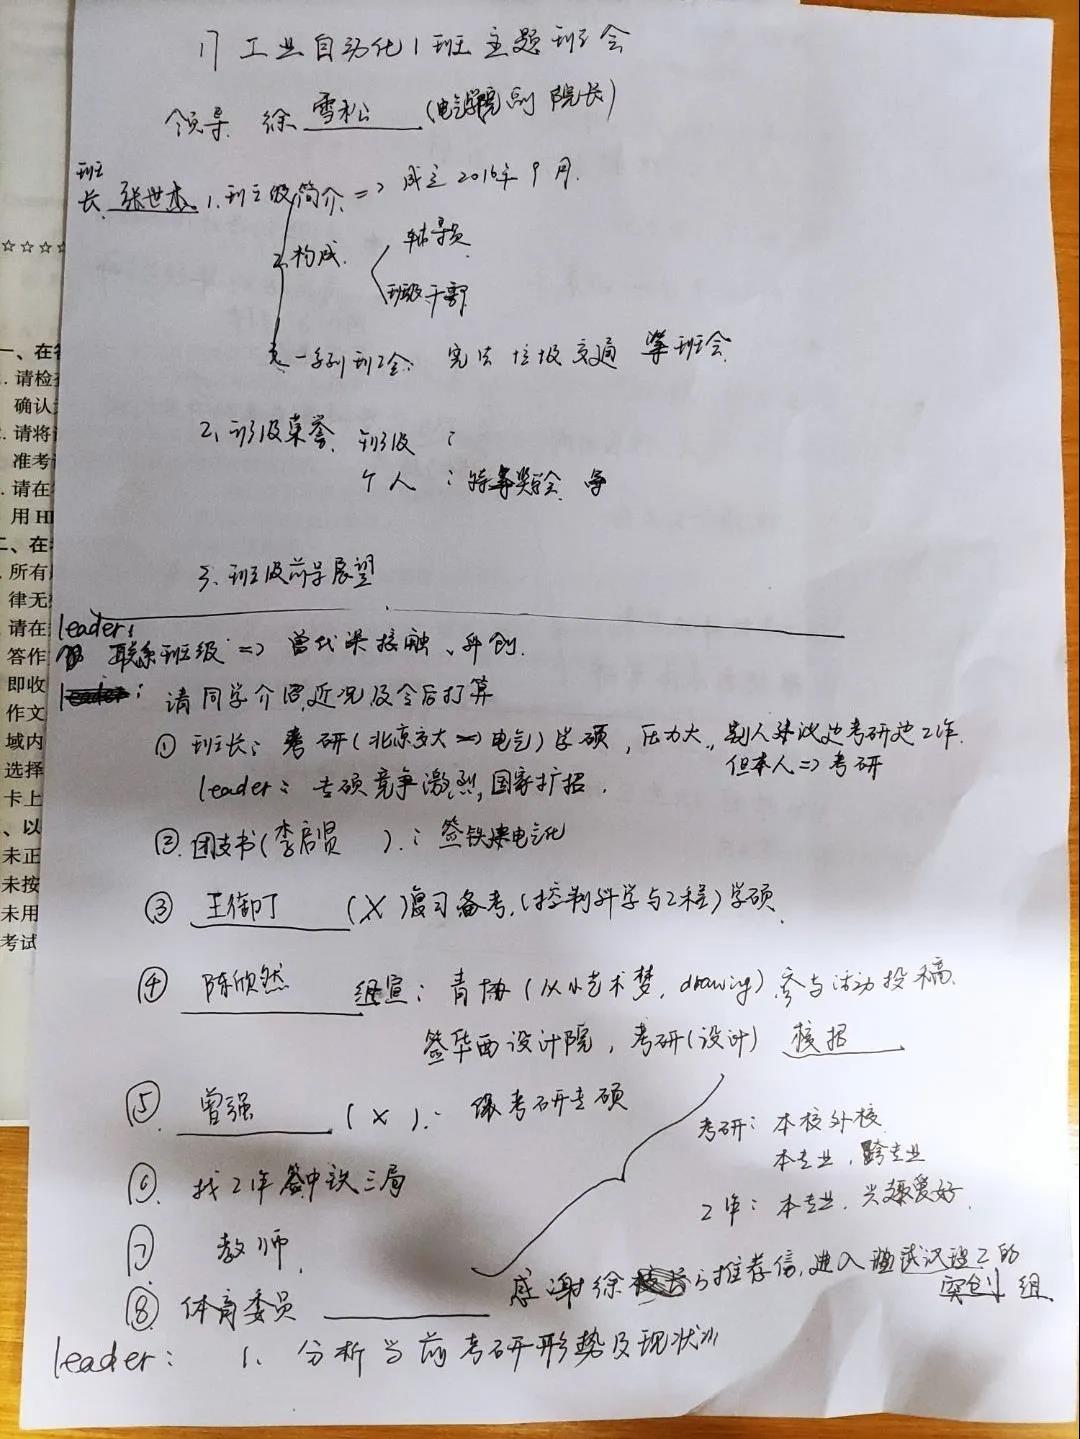 17 工业自动化1班主题班会
领导 徐雪松 (电气学院副院长)
班长 张世杰 1. 班级简介 => 成立2016年9月.
2. 构成. 辅导员
班级干部
一系列班会: 宪法 垃圾 交通 等班会
2. 班级荣誉. 班级 :
个人 : 特等奖学金 等
3. 班级前景展望
leader:
联系班级 => 曾代课接触、科创.
: 请同学介绍近况及今后打算
① 班长: 考研(北京交大 => 电气)学硕, 压力大, 别人建议边考研边工作.
但本人 => 考研
leader: 专硕竞争激烈, 国家扩招.
②. 团支书(李启贤 ).: 签铁建电气化
③ 王御丁 (X)复习备考,(控制科学与工程)学硕.
④ 陈欣然 组宣: 青协(从小艺术梦, drawing). 参与活动投稿.
签华西设计院, 考研(设计) 校招
⑤ 曾强 (X). 保考研专硕
考研: 本校外校
本专业, 跨专业
⑥. 找工作签中铁三局
工作: 本专业. 兴趣爱好.
⑦ 教师.
感谢徐 推荐信, 进入 武汉理工的
⑧ 体育委员
实创 组
leader: 1. 分析当前考研形势及现状